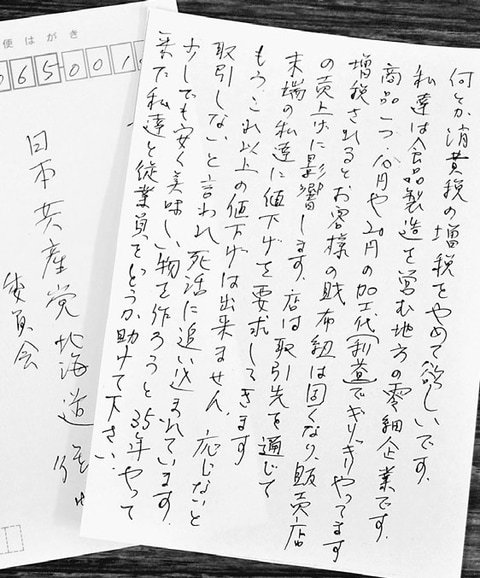 何とか消費税の増税をやめて欲しいです。
私達は食品製造を営む地方の零細企業です。
商品一つ、10円や20円の加工代(利益)でぎりぎりやってます
増税されるとお客様の財布紐は固くなり、販売店
の売上げに影響します。店は取引先を通じて
末端の私達に値下げを要求してきます
もうこれ以上の値下げは出来ません。応じないと
取引しないと言われ死活に追い込まれています。
少しでも安く美味しい物を作ろうと35年やって
来た私達と従業員をどうか助けて下さい。
便はがき
065001
日本共産党北海道
委員会